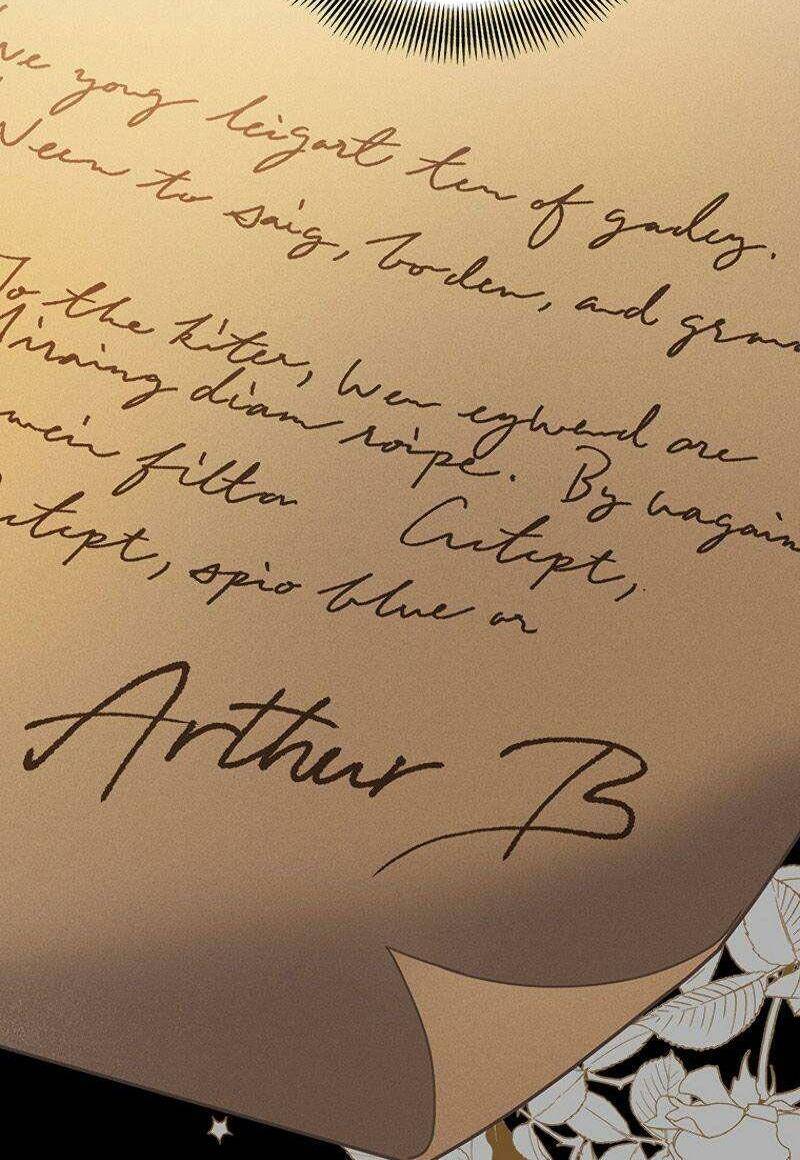 ve yong leigart ten of gadey.
Neen to saig, boden, and gran
To the kiter, Wen eghwend are
Miraing diam roipe. By wagain
wein filton Critept,
spio blue or
Arthur B